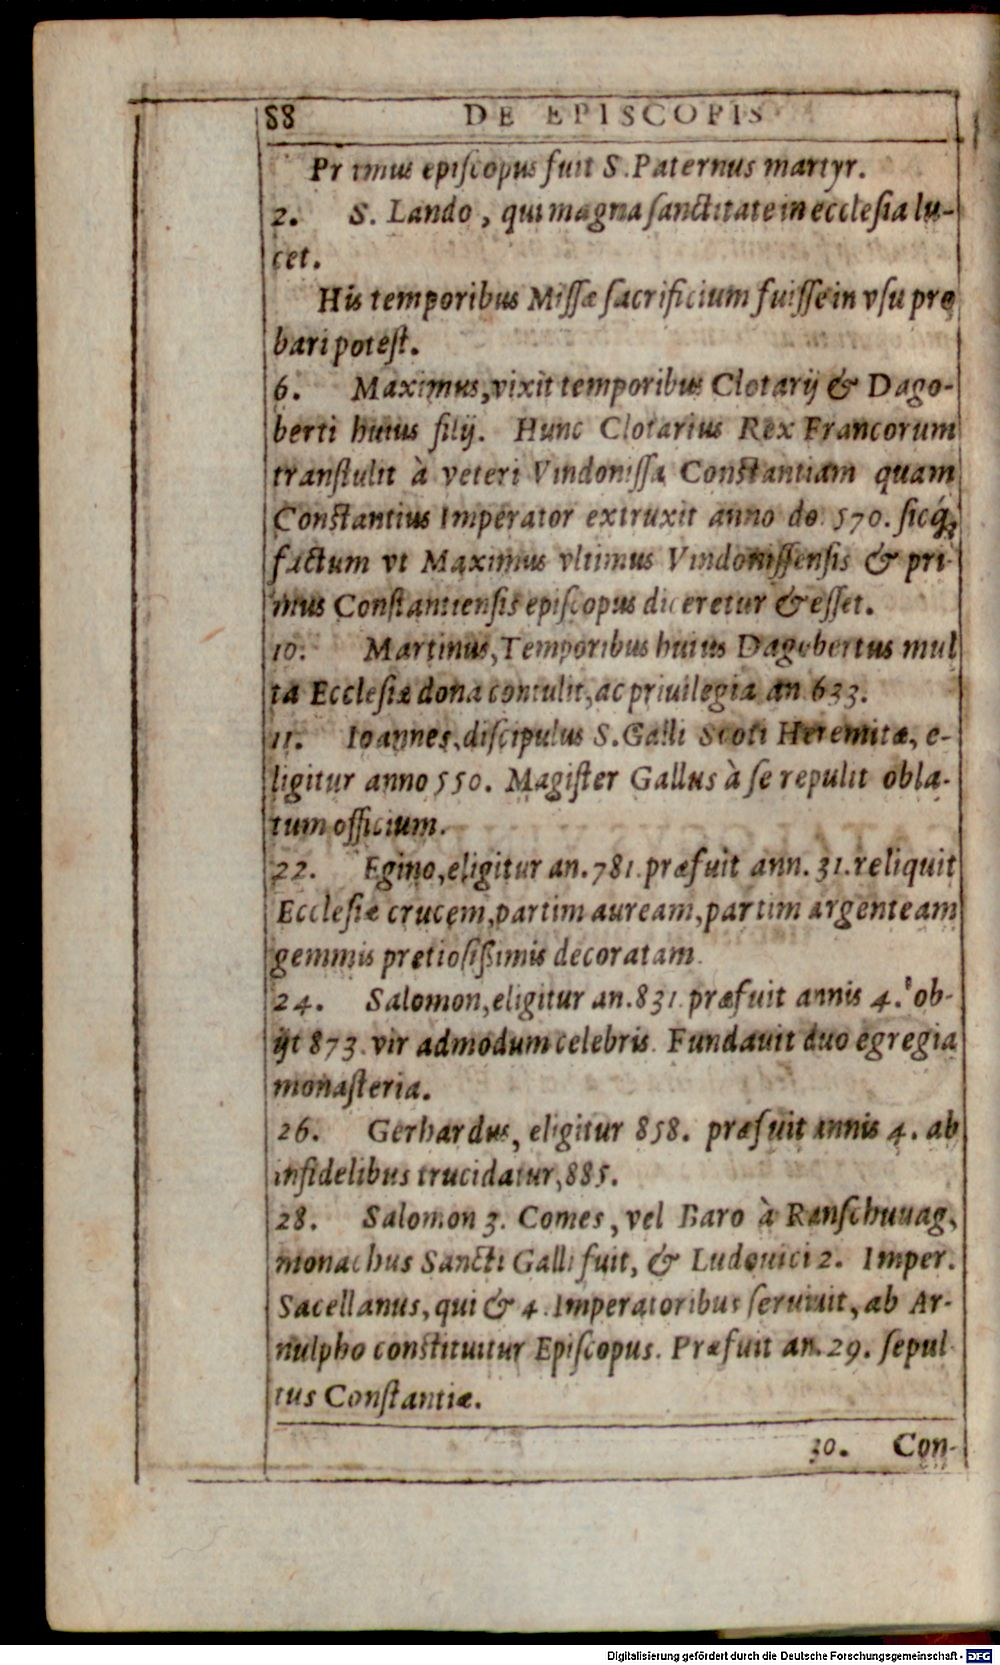 88 DE EPISCOPIS
Primus episcopus fuit S. Paternus martyr.
2. S. Lando, qui magna sanctitate in ecclesia lu-
cet.
His temporibus Missæ sacrificium fuisse in vsu pro
bari potest.
6. Maximus, vixit temporibus Clotarij & Dago-
berti huius filij. Hunc Clotarius Rex Francorum
transtulit à veteri Vindonissa Constantiam quam
Constantius Imperator extruxit anno do. 570. sicq́;
factum vt Maximus vltimus Vindonissensis & pri-
mus Constantiensis episcopus diceretur & esset.
10. Martinus, Temporibus huius Dagobertus mul
ta Ecclesiæ dona contulit, ac priuilegia an 633.
11. Ioannes, discipulus S. Galli Scoti Heremitæ, e-
ligitur anno 550. Magister Gallus à se repulit obla-
tum officium.
22. Egino, eligitur an. 781. præfuit ann. 31. reliquit
Ecclesiæ crucem, partim auream, partim argenteam
gemmis pretiosissimis decoratam.
24. Salomon, eligitur an. 831. præfuit annis 4. ob-
ijt 873. vir admodum celebris. Fundauit duo egregia
monasteria.
26. Gerhardus, eligitur 858. præfuit annis 4. ab
infidelibus trucidatur, 885.
28. Salomon 3. Comes, vel Baro à Ranschuuag,
monachus Sancti Galli fuit, & Ludouici 2. Imper.
Sacellanus, qui & 4. Imperatoribus seruiuit, ab Ar-
nulpho constituitur Episcopus. Præfuit an. 29. sepul
tus Constantiæ.
30. Con-
Digitalisierung gefördert durch die Deutsche Forschungsgemeinschaft - DFG